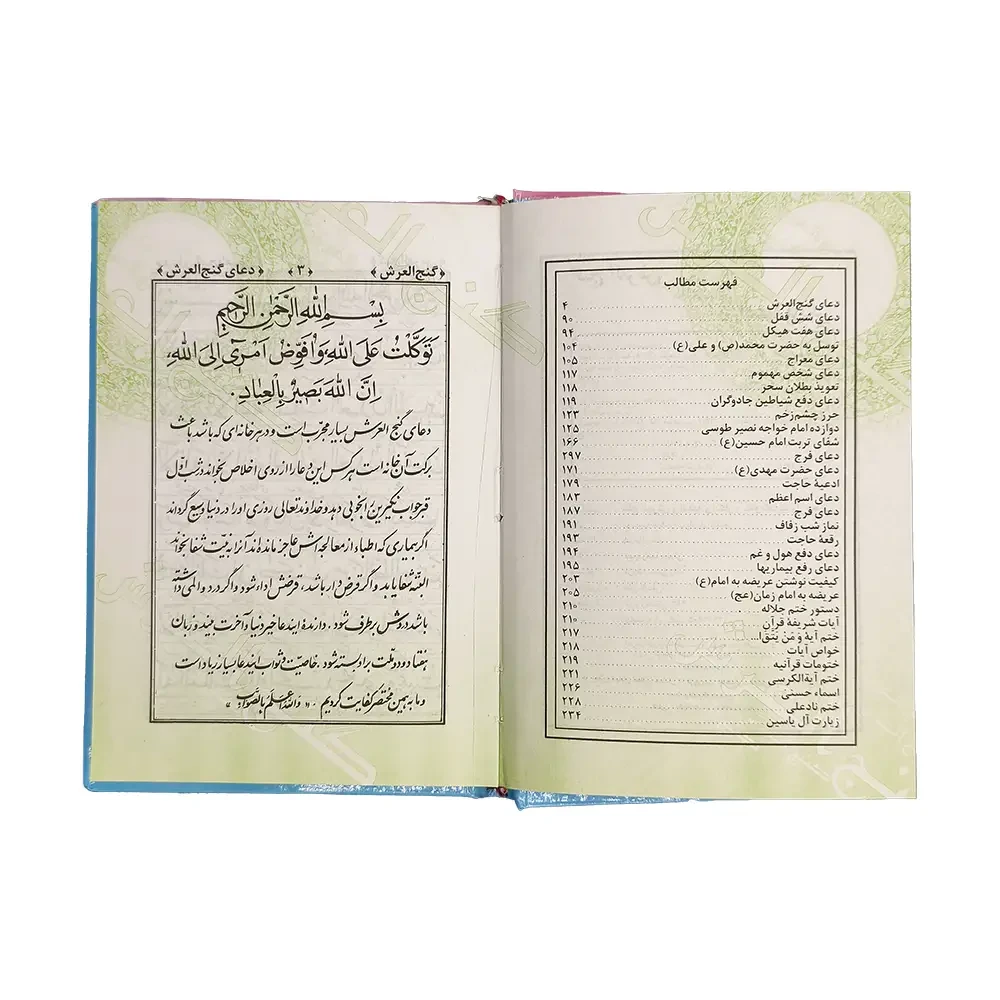 فهرست مطالب
دعای گنج‌العرش ... ۴
دعای شش قفل ... ۹۰
دعای هفت هیکل ... ۹۴
توسل به حضرت محمد(ص) و علی(ع) ... ۱۰۴
دعای معراج ... ۱۰۵
دعای شخص مهموم ... ۱۱۷
تعویذ بطلان سحر ... ۱۱۸
دعای دفع شیاطین جادوگران ... ۱۱۹
حرز چشم‌زخم ... ۱۲۳
دوازده امام خواجه نصیر طوسی ... ۱۲۵
شفای تربت امام حسین(ع) ... ۱۶۶
دعای فرج ... ۲۹۷
دعای حضرت مهدی(ع) ... ۱۷۱
ادعیهٔ حاجت ... ۱۷۹
دعای اسم اعظم ... ۱۸۳
دعای فرج ... ۱۸۷
نماز شب زفاف ... ۱۹۱
رقعهٔ حاجت ... ۱۹۳
دعای دفع هول و غم ... ۱۹۴
دعای رفع بیماریها ... ۱۹۵
کیفیت نوشتن عریضه به امام(ع) ... ۲۰۳
عریضه به امام زمان(عج) ... ۲۰۵
دستور ختم جلاله ... ۲۱۰
آیات شریفهٔ قرآن ... ۲۱۰
ختم آیهٔ وَ مَنْ یَتَّقِ‌ا... ... ۲۱۷
خواص آیات ... ۲۱۸
ختومات قرآنیه ... ۲۱۹
ختم آیةالکرسی ... ۲۲۱
اسماء حسنیٰ ... ۲۲۶
ختم نادعلی ... ۲۲۸
زیارت آل یاسین ... ۲۳۴
﴿ گنج‌العرش ﴾ ﴿ ۳ ﴾ ﴿ دعای گنج‌العرش ﴾
بِسْمِ اللهِ الرَّحْمٰنِ الرَّحیمِ
تَوَکَّلْتُ عَلَی اللهِ، وَاُفَوِّضُ اَمْرٓی اِلَی اللهِ،
اِنَّ اللهَ بَصیرٌ بِالْعِبادِ.
دعای گنج العرش بسیار مجرّب است و در هر خانه‌ای که باشد باعث
برکت آن خانه است هر کس این دعا را از روی اخلاص بخواند در شب اوّل
قبر جواب نکیرین را بخوبی دهد و خداوند تعالی روزی او را در دنیا وسیع گرداند
اگر بیماری که اطباء از معالجه‌اش عاجز مانده‌اند آنرا به نیّت شفا بخواند
البتّه شفا یابد و اگر قرض‌دار باشد، قرضش اداء شود و اگر درد و المی داشته
باشد دردش برطرف شود. دارندهٔ ایندعا خیر دنیا و آخرت بیند و زبان
هفتاد و دو ملّت بر او بسته شود. خاصیّت و ثواب ایندعا بسیار زیاد است
و ما به همین مختصر کفایت کردیم. «وَاللهُ اَعْلَمُ بِالصَّوابِ»